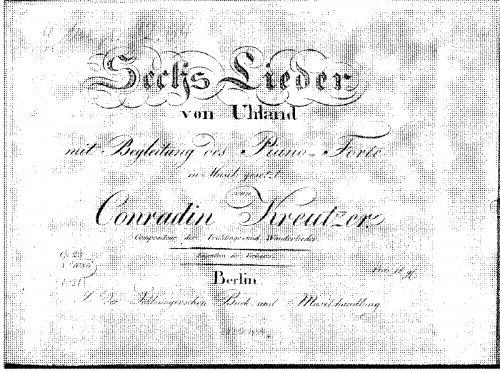 Sechs Lieder
von Uhland
mit Begleitung des Piano-Forte
in Musik gesetzt
von
Conradin Kreutzer.
Compositeur der Frühlings und Wanderlieder.
Eigenthum des Verlegers.
Berlin.
Buch und Musikhandlung